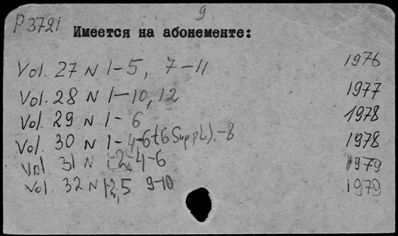 9
P3721 Имеется на абонементе:
Vol. 27 N 1-5, 7-11 1976
Vol. 28 N 1-10, 12 1977
Vol. 29 N 1-6 1978
Vol. 30 N 1-4-6+(6 Suppl.)-8 1978
Vol 31 N 1-2, 4-6 1979
Vol. 32 N 1-2,5 9-10 1979